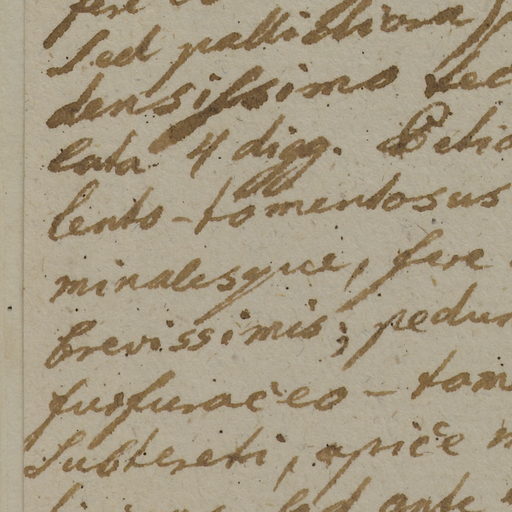 Sed pallidiora
densissimo tec
lata 4 digg. Petio
lento-tomentosus
minalesque, fere
brevissimis; pedun
furfuraceo-tom
subtereti, apice
sed ante